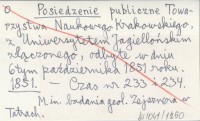 O Posiedzenie publiczne Towa-
rzystwa Naukowego Krakowskiego,
z Uniwersytetem Jagiellońskim
złączonego, odbyte w dniu
6tym października 1851 roku.
1851. – Czas nr 233 i 234.
M.in. badania geol. Zejsznera w
Tatrach.